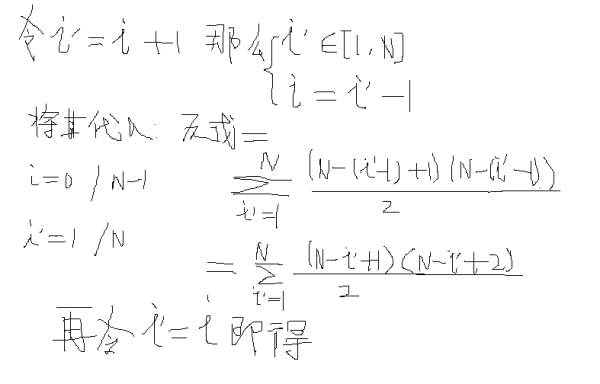 令 i' = i + 1 那么 { i' ∈ [1, N]
i = i' - 1
将其代入: 左式 =
i = 0 / N-1
\sum_{i'=1}^{N} \frac{(N-(i'-1)+1)(N-(i'-1))}{2}
i' = 1 / N
= \sum_{i'=1}^{N} \frac{(N-i'+1)(N-i'+2)}{2}
再令 i' = i 即得